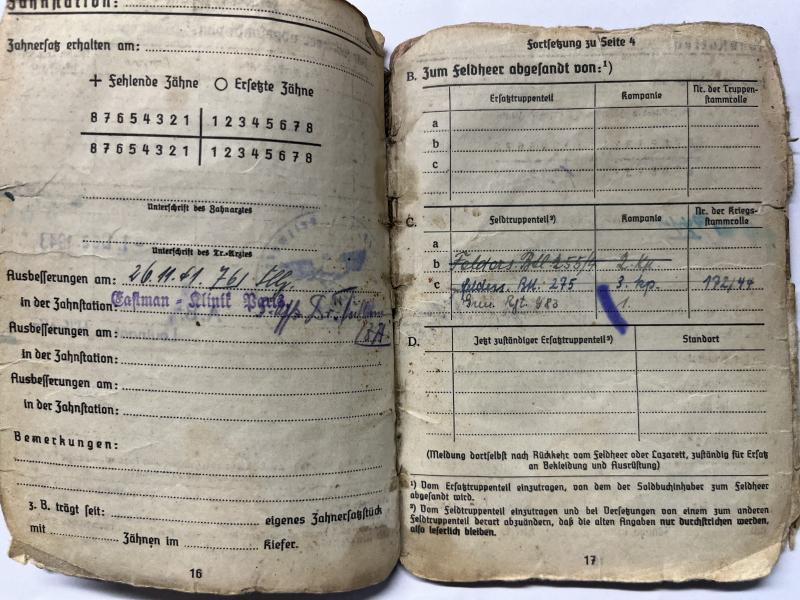 Zahnstation:
Zahnersatz erhalten am:
+ Fehlende Zähne ○ Ersetzte Zähne
8 7 6 5 4 3 2 1 1 2 3 4 5 6 7 8
8 7 6 5 4 3 2 1 1 2 3 4 5 6 7 8
Unterschrift des Zahnarztes
Unterschrift des Tr.-Arztes
Ausbesserungen am: 26.11.41. 761
in der Zahnstation: Eastman-Klinik Paris
Ausbesserungen am:
in der Zahnstation:
Ausbesserungen am:
in der Zahnstation:
Bemerkungen:
z. B. trägt seit: eigenes Zahnersatzstück
mit Zähnen im Kiefer.
16
Fortsetzung zu Seite 4
B. Zum Feldheer abgesandt von:¹)
Ersatztruppenteil Kompanie Nr. der Truppen-
stammrolle
a
b
c
C. Feldtruppenteil²) Kompanie Nr. der Kriegs-
stammrolle
a
b Felders. Btl 2. Kp.
c Felders. Btl. 275 3. Kp. 172/44
Gren. Rgt. 983 1.
D. Jetzt zuständiger Ersatztruppenteil²) Standort
(Meldung dortselbst nach Rückkehr vom Feldheer oder Lazarett, zuständig für Ersatz
an Bekleidung und Ausrüstung)
¹) Vom Ersatztruppenteil einzutragen, von dem der Soldbuchinhaber zum Feldheer
abgesandt wird.
²) Vom Feldtruppenteil einzutragen und bei Versetzungen von einem zum anderen
Feldtruppenteil derart abzuändern, daß die alten Angaben nur durchstrichen werden,
also leserlich bleiben.
17